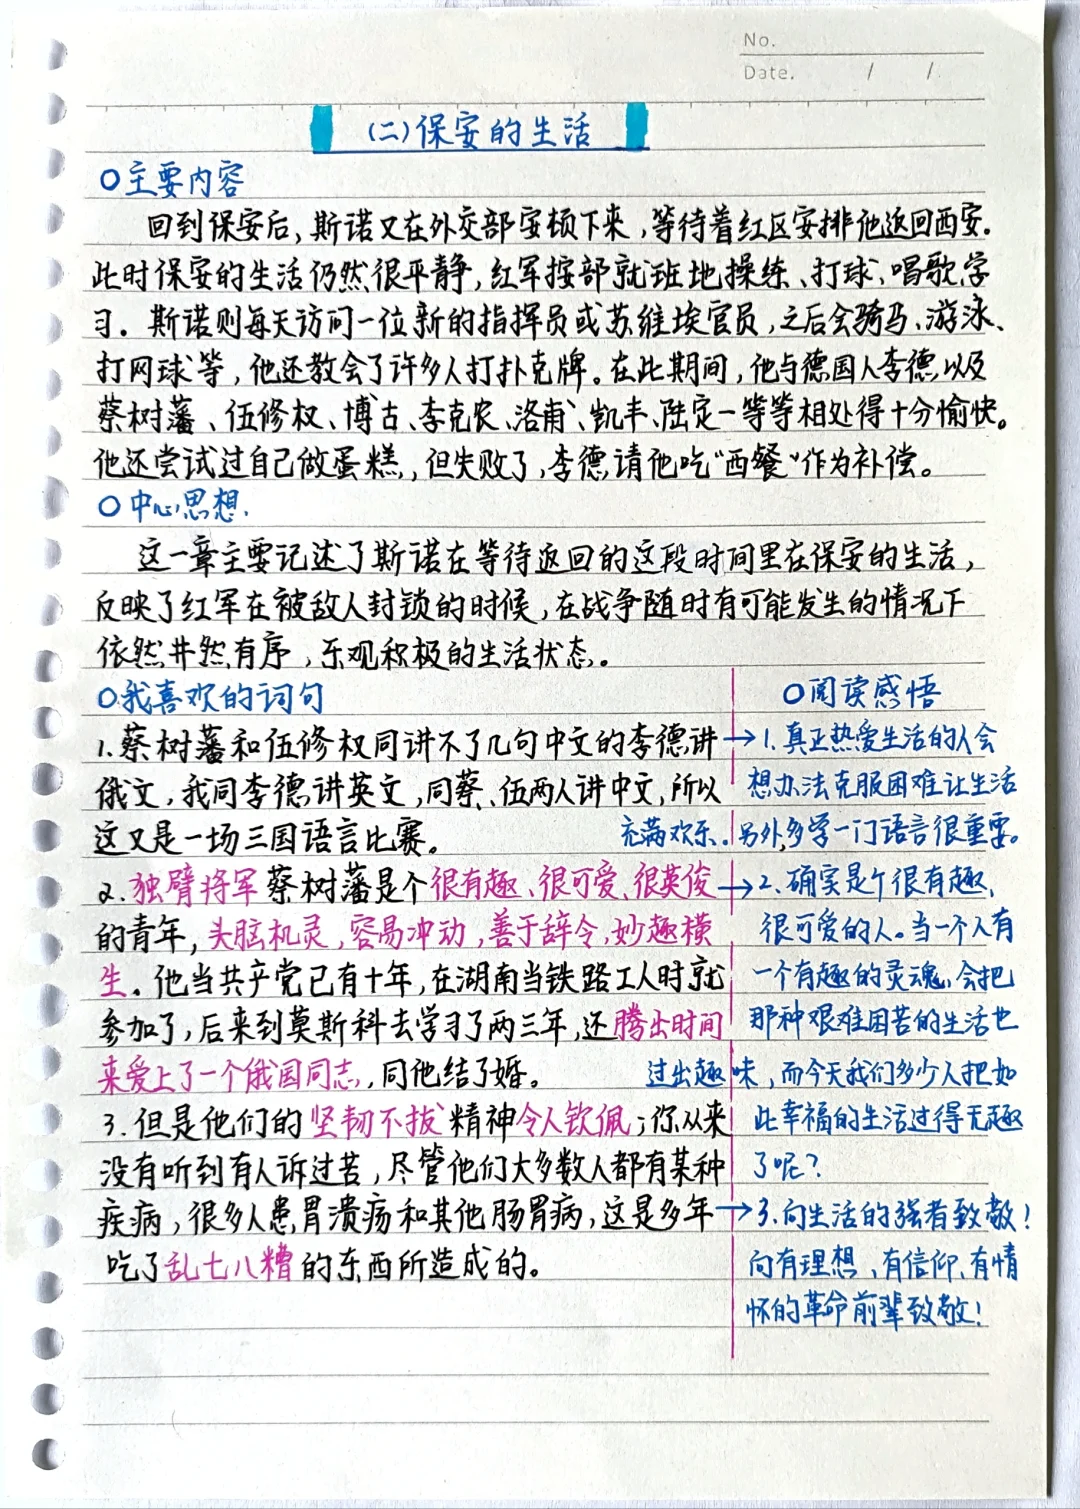 No.
Date. / /
(二)保安的生活
○主要内容
回到保安后,斯诺又在外交部安顿下来,等待着红区安排他返回西安.
此时保安的生活仍然很平静,红军按部就班地操练、打球、唱歌学
习。斯诺则每天访问一位新的指挥员或苏维埃官员,之后会骑马、游泳、
打网球等,他还教会了许多人打扑克牌。在此期间,他与德国人李德以及
蔡树藩、伍修权、博古、李克农、洛甫、凯丰、陆定一等等相处得十分愉快。
他还尝试过自己做蛋糕,但失败了,李德请他吃“西餐”作为补偿。
○中心思想.
这一章主要记述了斯诺在等待返回的这段时间里在保安的生活,
反映了红军在被敌人封锁的时候,在战争随时有可能发生的情况下
依然井然有序,乐观积极的生活状态。
○我喜欢的词句
1.蔡树藩和伍修权同讲不了几句中文的李德讲
俄文,我同李德讲英文,同蔡、伍两人讲中文,所以
这又是一场三国语言比赛。
2.独臂将军蔡树藩是个很有趣、很可爱、很英俊
的青年,头脑机灵,容易冲动,善于辞令,妙趣横
生。他当共产党已有十年,在湖南当铁路工人时就
参加了,后来到莫斯科去学习了两三年,还腾出时间
来爱上了一个俄国同志,同他结了婚。
3.但是他们的坚韧不拔精神令人钦佩;你从来
没有听到有人诉过苦,尽管他们大多数人都有某种
疾病,很多人患胃溃疡和其他肠胃病,这是多年
吃了乱七八糟的东西所造成的。
○阅读感悟
→1.真正热爱生活的人会
想办法克服困难让生活
充满欢乐.另外,多学一门语言很重要。
→2.确实是个很有趣、
很可爱的人。当一个人有
一个有趣的灵魂,会把
那种艰难困苦的生活也
过出趣味,而今天我们多少人把如
此幸福的生活过得无趣
了呢?
→3.向生活的强者致敬!
向有理想、有信仰、有情
怀的革命前辈致敬!